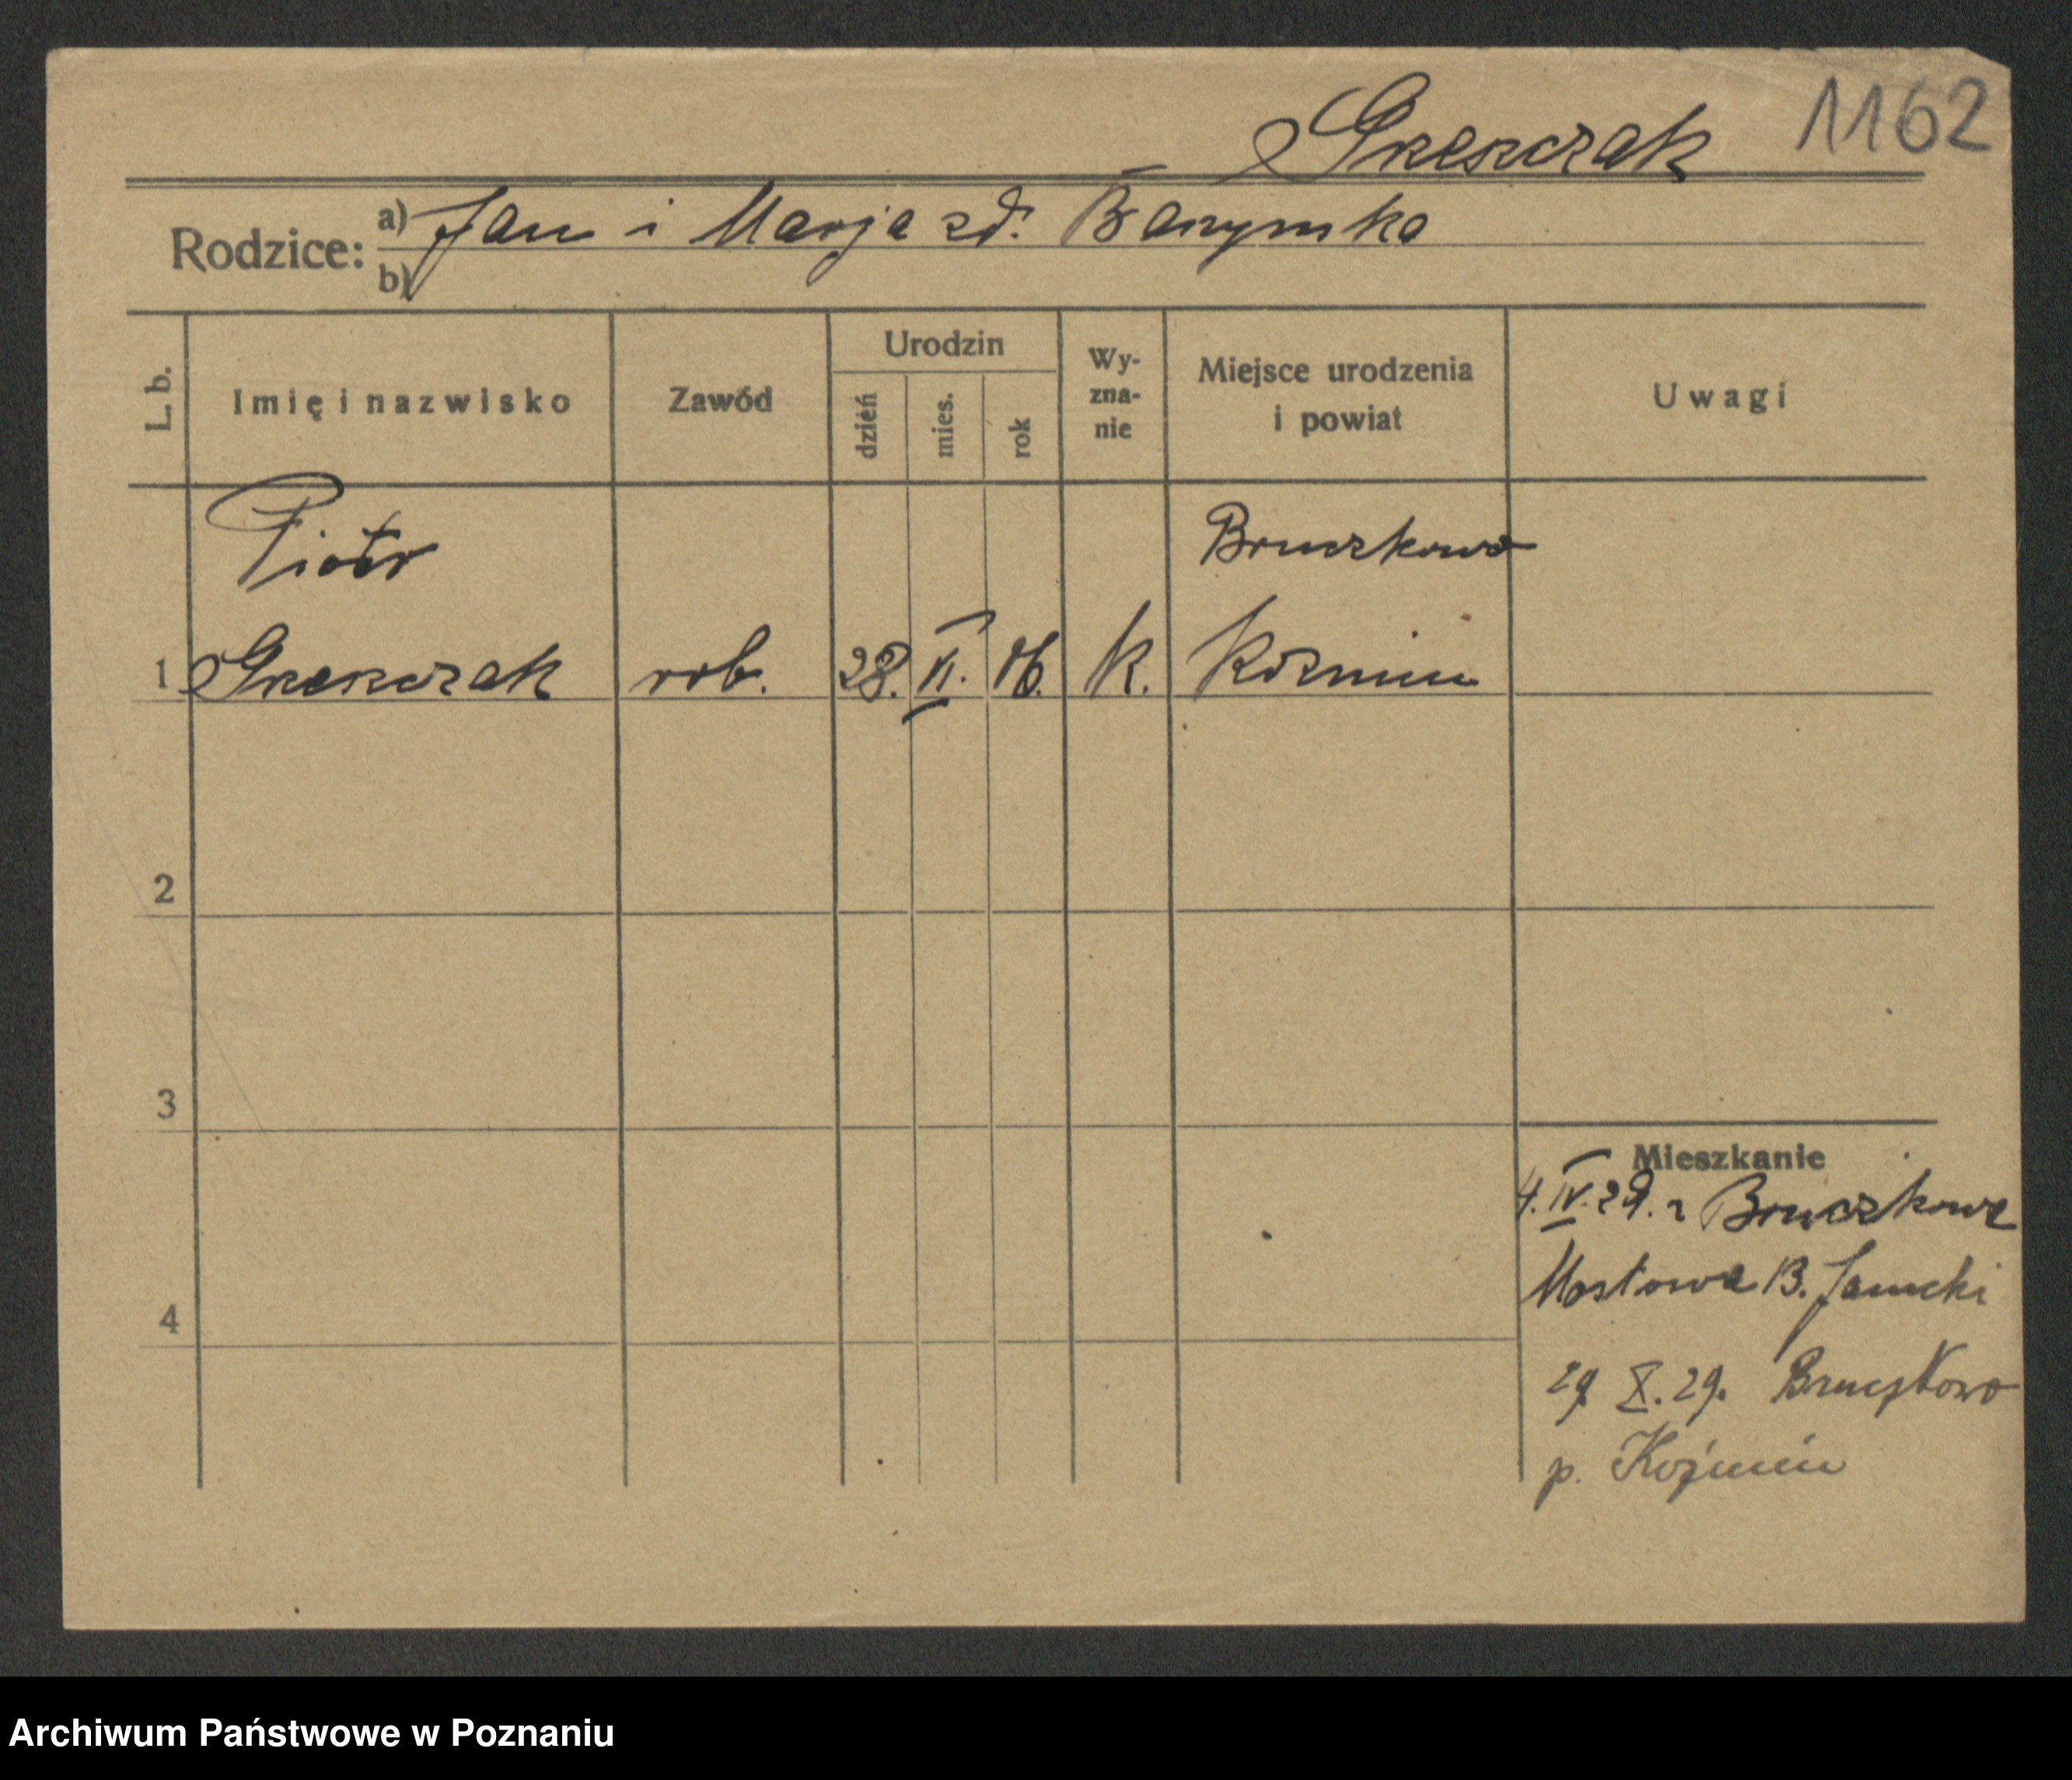 1162
Grzeszczak
Rodzice: a) Jan i Marja zd.
b)
L. b.
Imię i nazwisko
Zawód
Urodzin
dzień
mies.
rok
Wy-
zna-
nie
Miejsce urodzenia
i powiat
Uwagi
Piotr
Bruczkowo
1 Grzeszczak rob. 28. VI. 06. K. Kozmin
2
3
Mieszkanie
4. IV. 29. z Bruczkowa
Mostowa 13. Janicki
4
29 X. 29. Bruczkowo
p. Koźmin
Archiwum Państwowe w Poznaniu